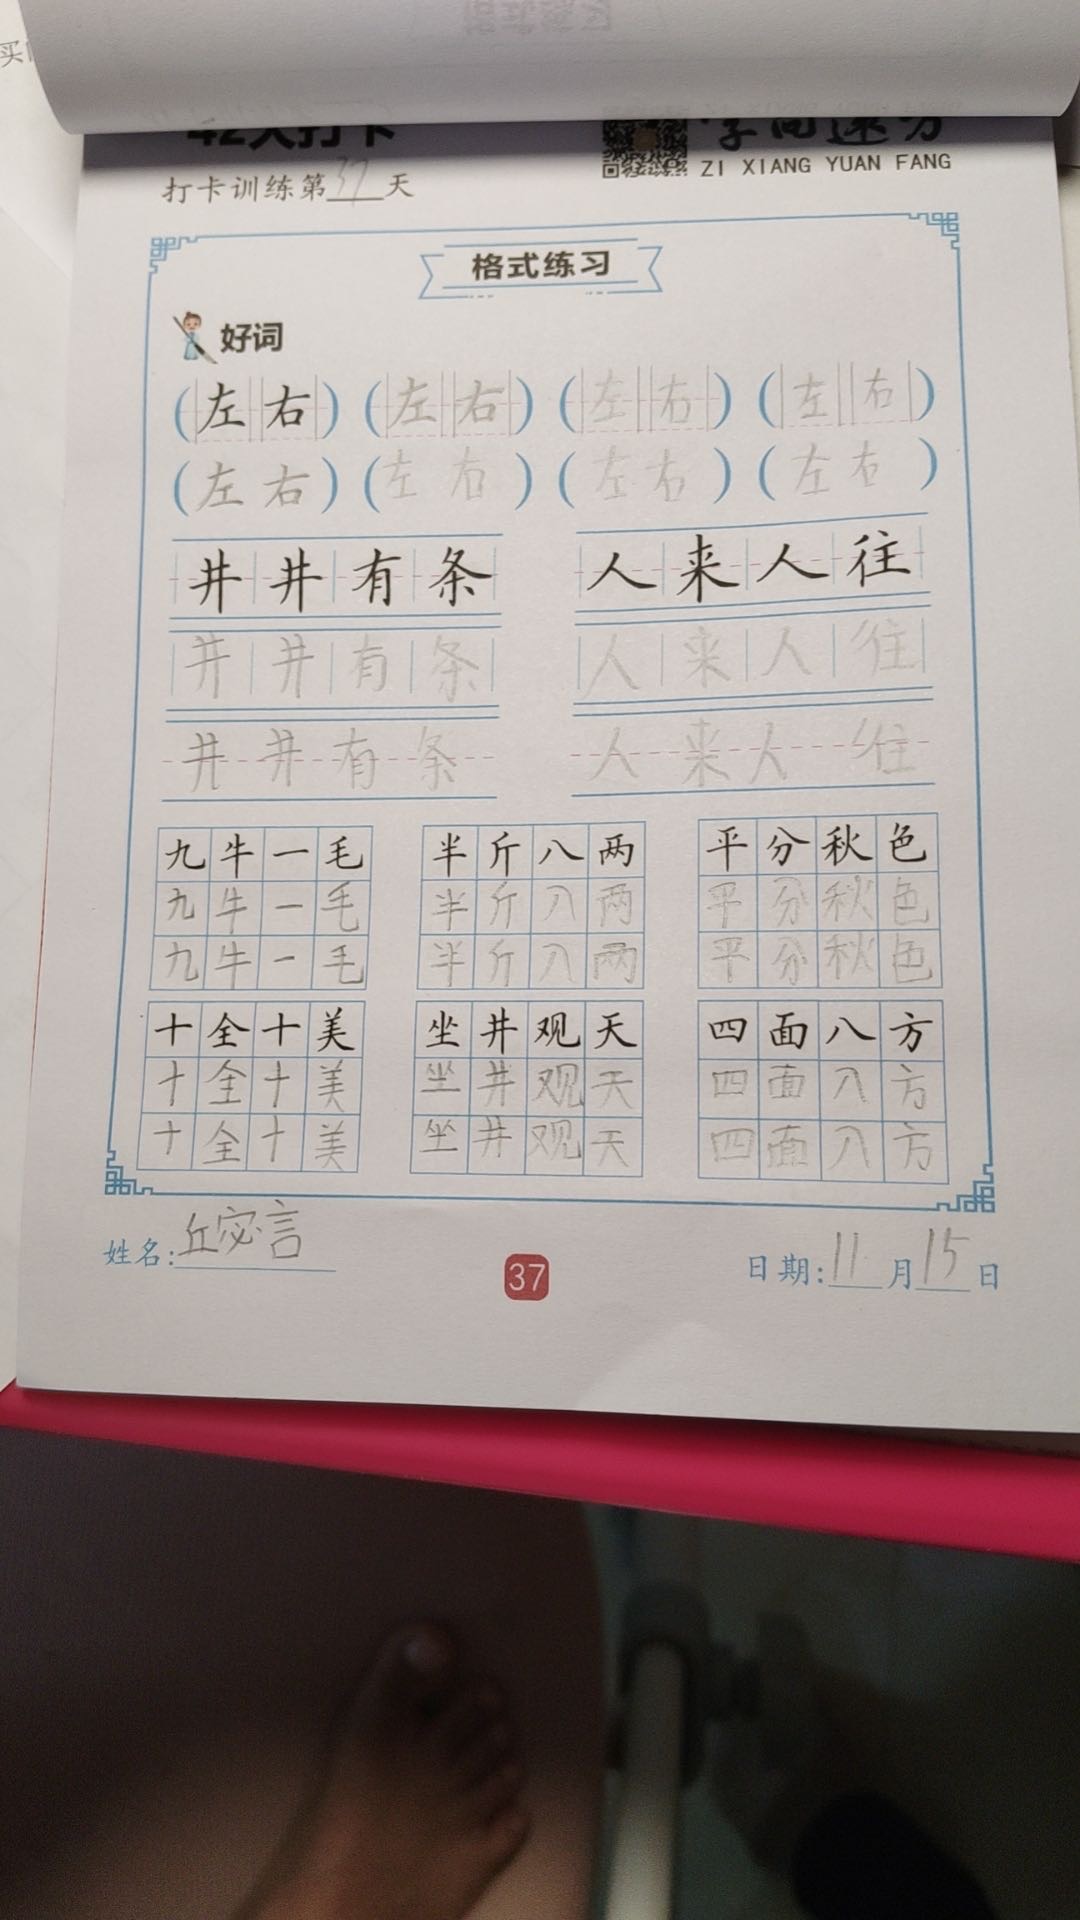 买
42天打卡
字向速方
ZI XIANG YUAN FANG
打卡训练第37天
格式练习
好词
(左右) (左右) (左右) (左右)
(左右) (左右) (左右) (左右)
井井有条 人来人往
井井有条 人来人往
井井有条 人来人往
九牛一毛 半斤八两 平分秋色
九牛一毛 半斤八两 平分秋色
九牛一毛 半斤八两 平分秋色
十全十美 坐井观天 四面八方
十全十美 坐井观天 四面八方
十全十美 坐井观天 四面八方
姓名:丘宓言
37
日期:11月15日